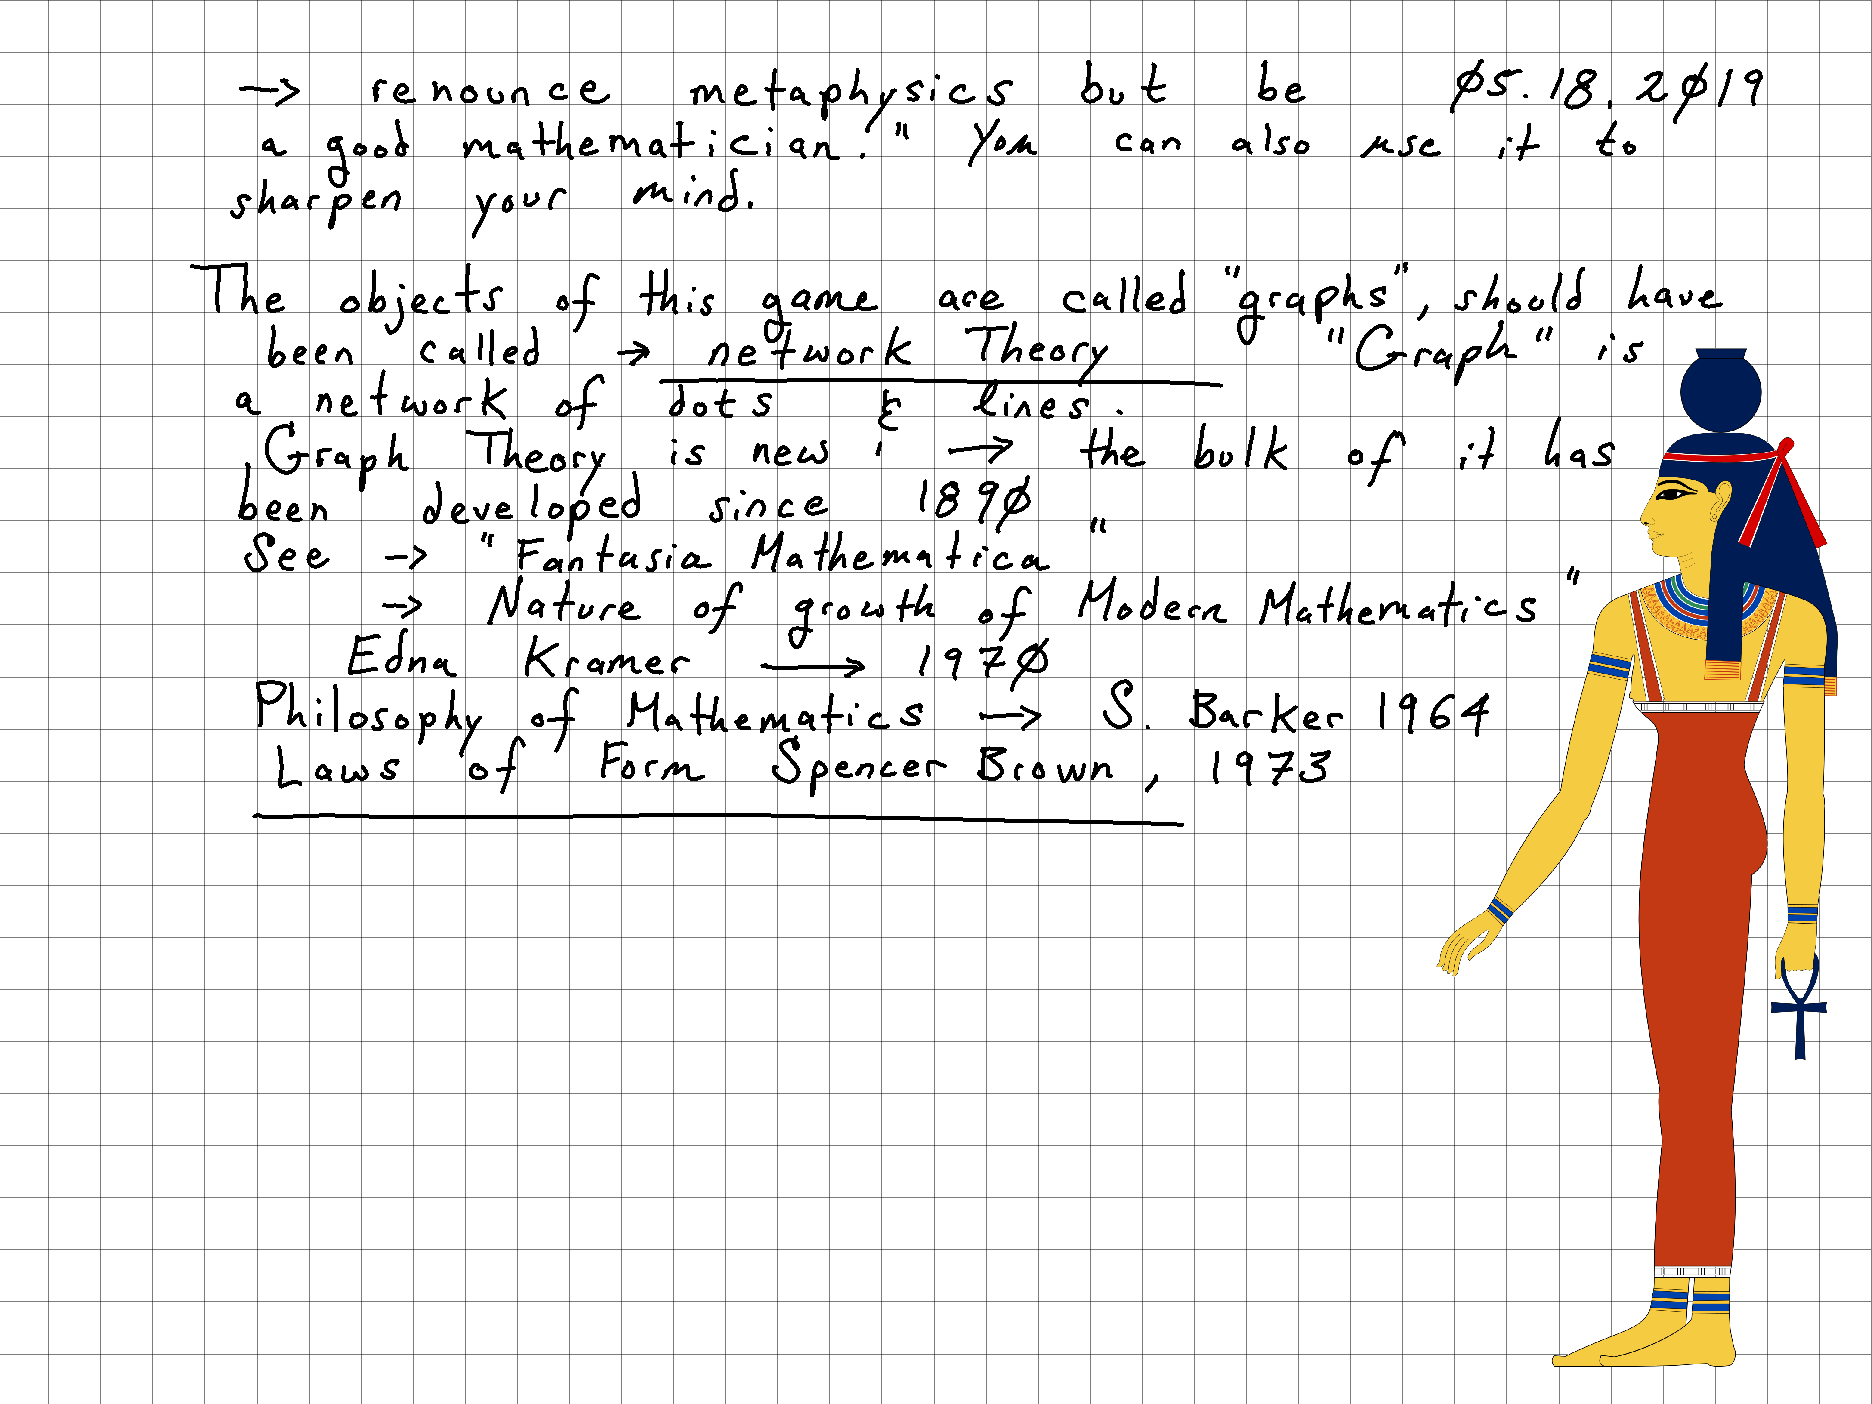 → renounce metaphysics but be Ø5.18.2Ø19
a good mathematician." You can also use it to
sharpen your mind.
The objects of this game are called "graphs", should have
been called → network Theory "Graph" is
a network of dots & lines.
Graph Theory is new → the bulk of it has
been developed since 189Ø
See → "Fantasia Mathematica"
→ Nature of growth of Modern Mathematics"
Edna Kramer → 197Ø
Philosophy of Mathematics → S. Barker 1964
Laws of Form Spencer Brown, 1973